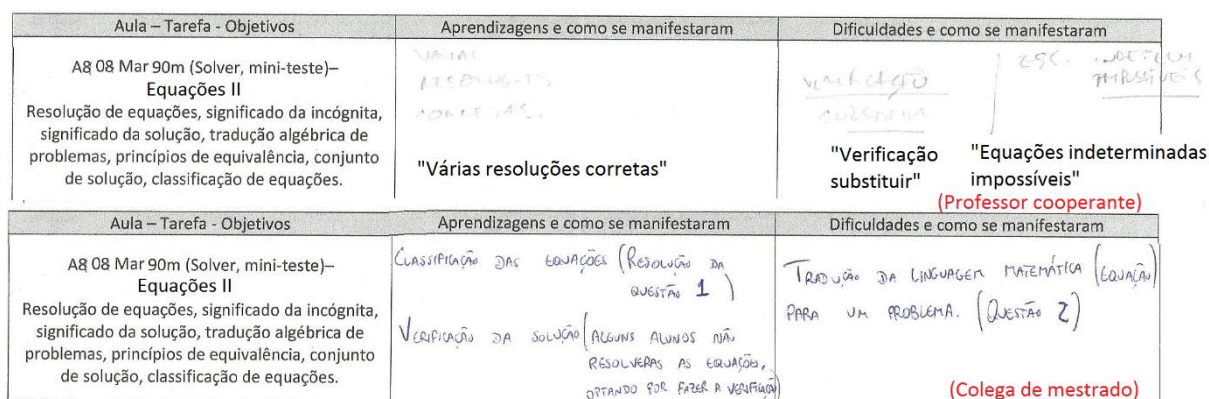 Aula – Tarefa - Objetivos
Aprendizagens e como se manifestaram
Dificuldades e como se manifestaram
A8 08 Mar 90m (Solver, mini-teste)–
Equações II
Resolução de equações, significado da incógnita,
significado da solução, tradução algébrica de
problemas, princípios de equivalência, conjunto
de solução, classificação de equações.
"Várias resoluções corretas"
VERIFICAÇÃO
"Verificação
substituir"
"Equações indeterminadas
impossíveis"
(Professor cooperante)
Aula – Tarefa - Objetivos
Aprendizagens e como se manifestaram
Dificuldades e como se manifestaram
A8 08 Mar 90m (Solver, mini-teste)–
Equações II
Resolução de equações, significado da incógnita,
significado da solução, tradução algébrica de
problemas, princípios de equivalência, conjunto
de solução, classificação de equações.
CLASSIFICAÇÃO DAS EQUAÇÕES (RESOLUÇÃO DA
QUESTÃO 1)
VERIFICAÇÃO DA SOLUÇÃO (ALGUNS ALUNOS NÃO
RESOLVERAS AS EQUAÇÕES,
OPTANDO POR FAZER A VERIFICAÇÃO)
TRADUÇÃO DA LINGUAGEM MATEMÁTICA (EQUAÇÃO)
PARA UM PROBLEMA. (QUESTÃO 2)
(Colega de mestrado)